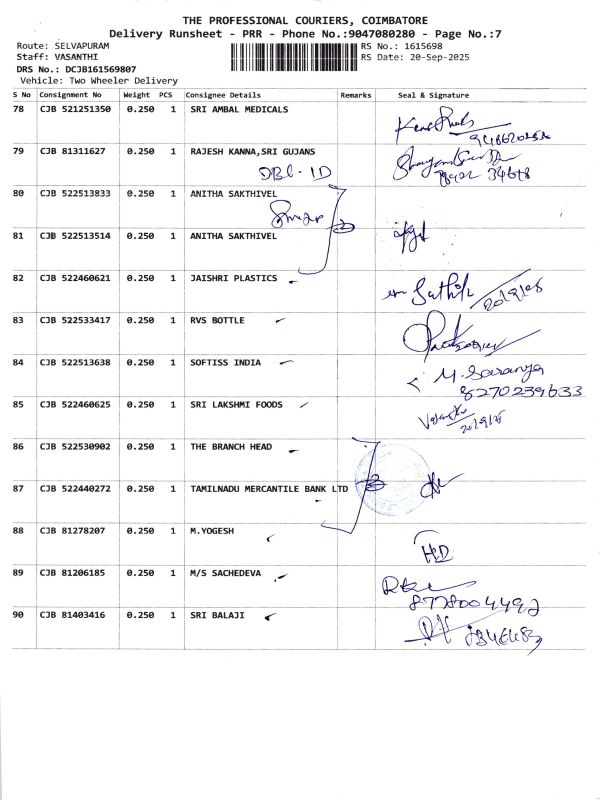 THE PROFESSIONAL COURIERS, COIMBATORE
Delivery Runsheet - PRR - Phone No.:9047080280 - Page No.:7
Route: SELVAPURAM RS No.: 1615698
Staff: VASANTHI RS Date: 20-Sep-2025
DRS No.: DCJB161569807
Vehicle: Two Wheeler Delivery
S No Consignment No Weight PCS Consignee Details Remarks Seal & Signature
78 CJB 521251350 0.250 1 SRI AMBAL MEDICALS
79 CJB 81311627 0.250 1 RAJESH KANNA,SRI GUJANS
80 CJB 522513833 0.250 1 ANITHA SAKTHIVEL
81 CJB 522513514 0.250 1 ANITHA SAKTHIVEL
82 CJB 522460621 0.250 1 JAISHRI PLASTICS
83 CJB 522533417 0.250 1 RVS BOTTLE
84 CJB 522513638 0.250 1 SOFTISS INDIA
M. Saranya
8270239633
85 CJB 522460625 0.250 1 SRI LAKSHMI FOODS
86 CJB 522530902 0.250 1 THE BRANCH HEAD
87 CJB 522440272 0.250 1 TAMILNADU MERCANTILE BANK LTD
88 CJB 81278207 0.250 1 M.YOGESH
89 CJB 81206185 0.250 1 M/S SACHEDEVA
8778004492
90 CJB 81403416 0.250 1 SRI BALAJI